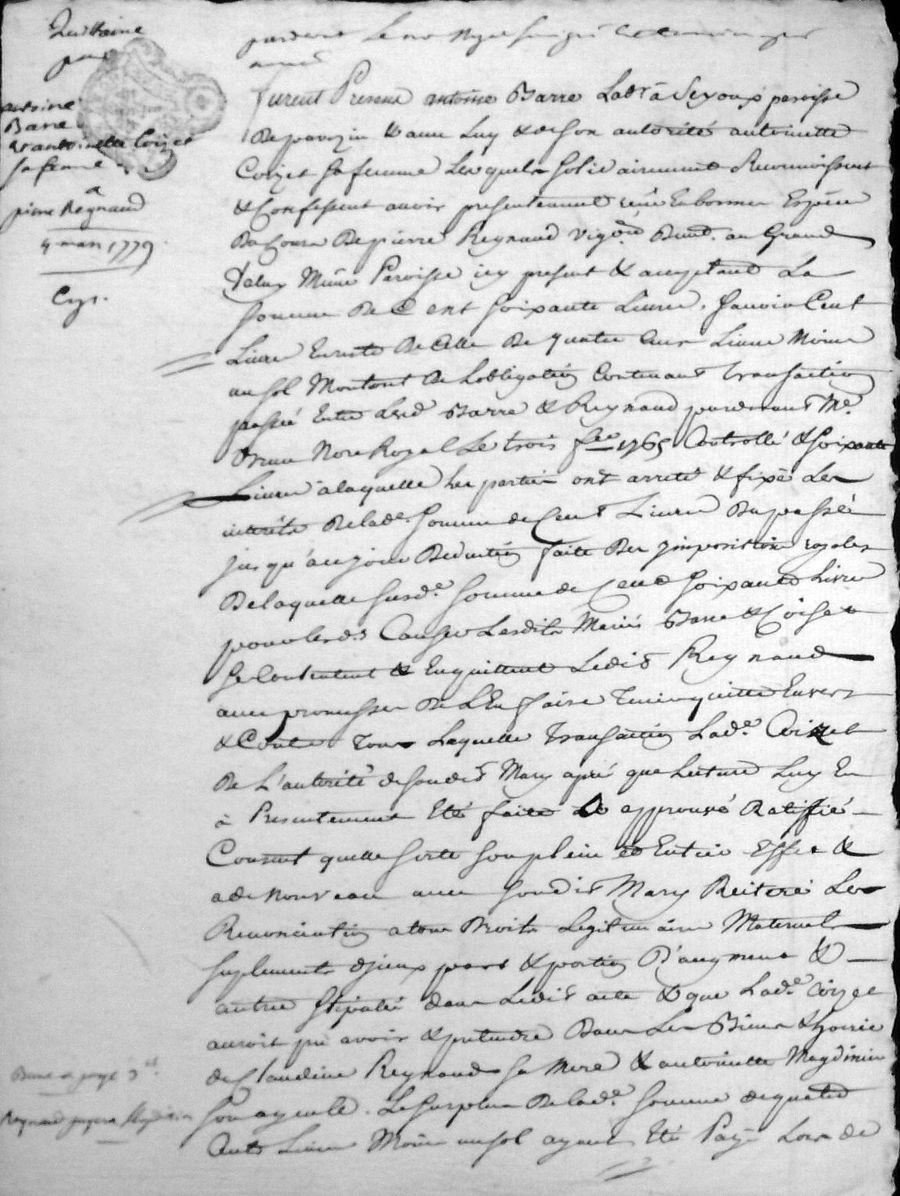 Quittance
pour
antoine
Barre
& antoinette Coizet
sa femme
a
pierre Reynaud
4 mars 1779
Exp.
pardevant Le no.re Royal soussigné
furent Presens antoine Barre Lab.r à paroisse
de & avec Luy & de son autorité antoinette
Coizet sa femme Lesquels solidairement Reconnoissent
& Confessent avoir presentement reçu En bonnes Espèces
De Cours De pierre Reynaud vig.on Dem.t au Grand
Même Paroisse icy present & acceptant La
somme De Cent soixante Livres. sçavoir Cent
Livres En reste De Celle De quatre Cens Livres Moins
un sol Montant De Lobligation Contenant transaction
passée Entre Lesd. Barre & Reynaud pardevant M.e
Nore Royal Le trois 1765 Controllé & soixante
Livres a laquelle les parties ont arreté & fixé Les
interêts De lade somme de Cent Livres Du passé
jusqu'à ce jour Deduction faite Des impositions royales
De laquelle susd.e somme de Cent soixante Livres
pour les d. Causes Lesdits Mariés Barre & Coizet
se Contentent & En quittent Ledit Reynaud
avec promesse De L'En faire tenir quitte Envers
& Contre Tous Laquelle transaction Lad.e Coizet
De L'autorité de son dit Mary après que Lecture Luy En
à Presentement Eté faite a approuvé Ratifié
Consent quelle sorte son plein & Entier Effet &
a de nouveau avec son dit Mary Reiteré Les
Renonciation a tous Droits Legitimaires Maternels
suplements d'jceux part & portion D'augment &
autres stipulés dans Ledit acte & que Lad.e Coizet
auroit pu avoir & pretendre Dans Les Biens & hoirie
de Claudine Reynaud sa Mere & antoinette Magdinier
son ayeule. Le surplus De lad.e somme de quatre
Cents Livres Moins un sol ayant Eté Payé Lors de
Barre a payé 3
Reynaud payera